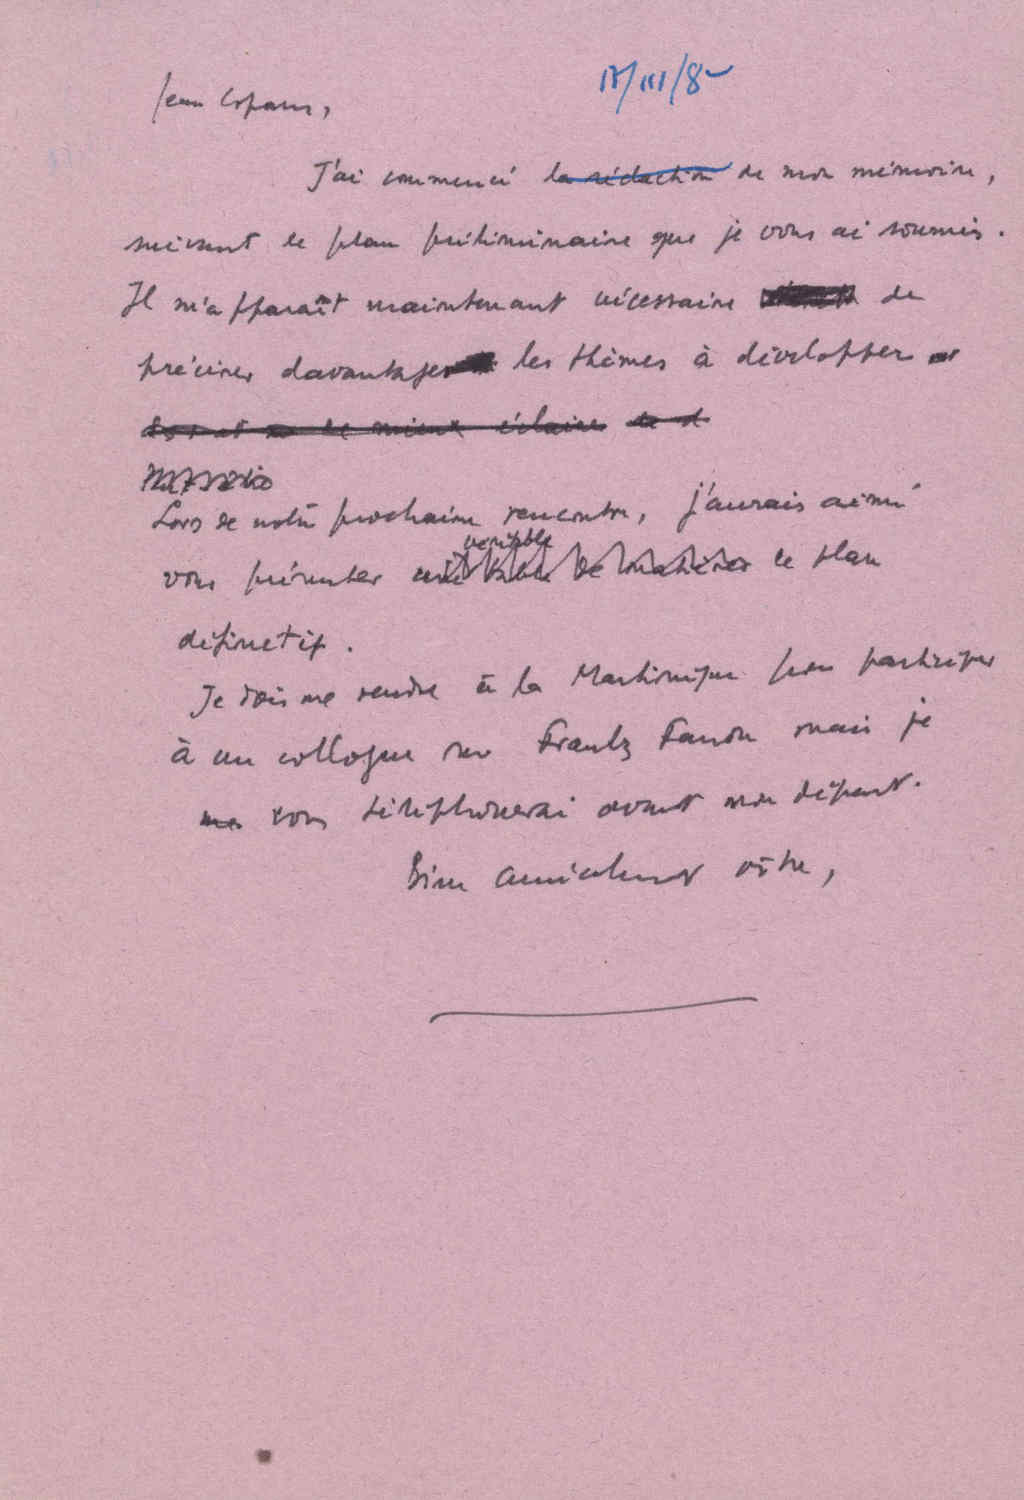 Jean Copans,
J'ai commencé la rédaction de mon mémoire,
suivant le plan préliminaire que je vous ai soumis.
Il m'apparaît maintenant nécessaire de
préciser davantage les thèmes à développer
le mieux éclaire
Lors de notre prochaine rencontre, j'aurais aimé
véritable
vous présenter une table de matières le plan
définitif.
Je dois me rendre à la Martinique pour participer
à un colloque sur Frantz Fanon mais je
vous téléphonerai avant mon départ.
Bien amicalement vôtre,